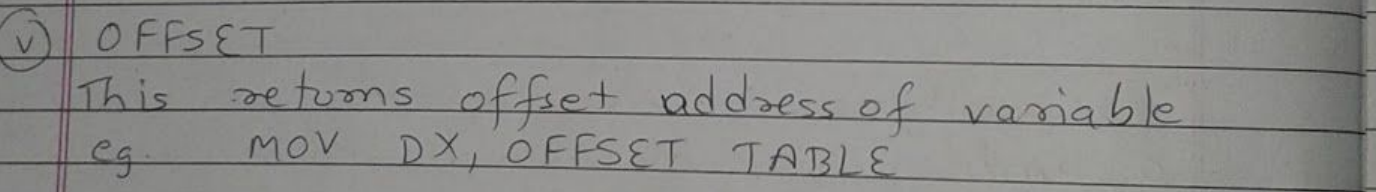 (v) OFFSET
This returns offset address of variable
eg. MOV DX, OFFSET TABLE